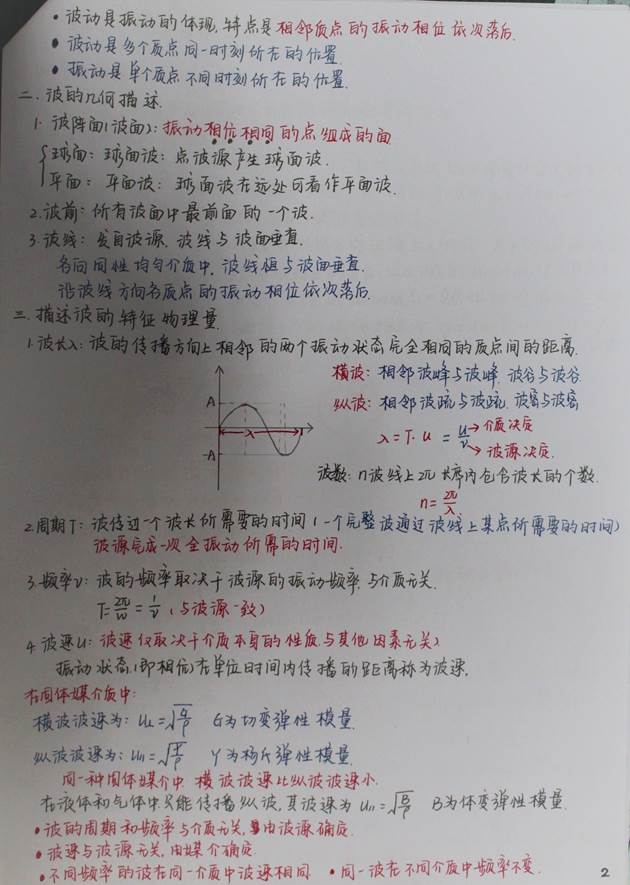 • 波动是振动的体现,特点是相邻质点的振动相位依次落后.
• 波动是多个质点同一时刻所在的位置.
• 振动是单个质点不同时刻所在的位置.
二. 波的几何描述.
1. 波阵面(波面): 振动相位相同的点组成的面
球面: 球面波: 点波源产生球面波.
平面: 平面波: 球面波在远处可看作平面波.
2. 波前: 所有波面中最前面的一个波.
3. 波线: 发自波源, 波线与波面垂直.
各向同性均匀介质中, 波线恒与波面垂直.
沿波线方向各质点的振动相位依次落后.
三. 描述波的特征物理量.
1. 波长λ: 波的传播方向上相邻的两个振动状态完全相同的质点间的距离.
横波: 相邻波峰与波峰, 波谷与波谷
纵波: 相邻波疏与波疏, 波密与波密
A
λ
T
-A
λ = T·u = u/ν → 介质决定
→ 波源决定.
波数: n波线上2π长度内包含波长的个数.
n = 2π/λ
2. 周期T: 波传过一个波长所需要的时间(一个完整波通过波线上某点所需要的时间)
波源完成一次全振动所需的时间.
3. 频率ν: 波的频率取决于波源的振动频率, 与介质无关.
T = 2π/ω = 1/ν (与波源一致)
4. 波速u: 波速仅取决于介质本身的性质(与其他因素无关)
振动状态(即相位)在单位时间内传播的距离称为波速.
在固体媒介质中:
横波波速为: u⊥ = √G/ρ G为切变弹性模量
纵波波速为: u∥ = √Y/ρ Y为杨氏弹性模量
同一种固体媒介中, 横波波速比纵波波速小.
在液体和气体中只能传播纵波, 其波速为 u∥ = √B/ρ B为体变弹性模量.
• 波的周期和频率与介质无关, 由波源确定.
• 波速与波源无关, 由媒介确定.
• 不同频率的波在同一介质中波速相同 • 同一波在不同介质中频率不变.
2